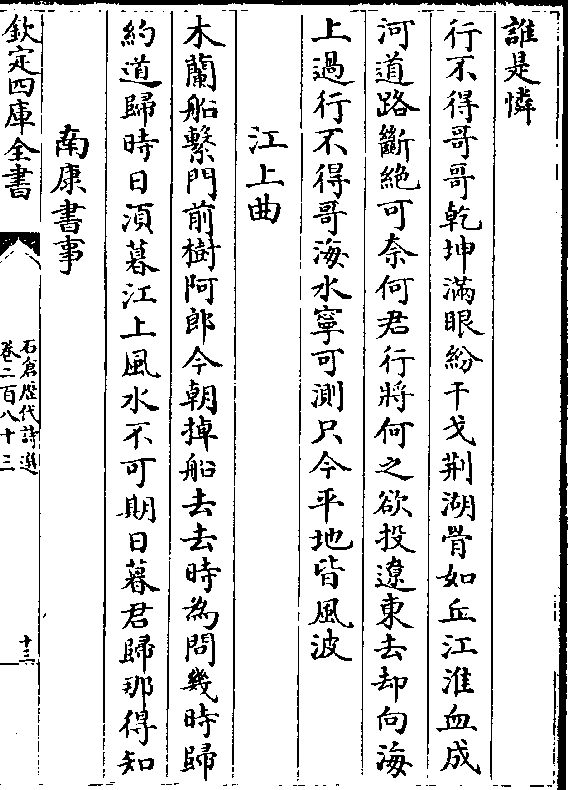 誰是憐
行不得哥哥乾坤滿眼紛干戈荆湖骨如丘江淮血成
河道路斷絶可奈何君行將何之欲投遼東去却向海
上過行不得哥海水寧可測只今平地皆風波
江上曲
木蘭船繫門前樹阿郎今朝掉船去去時為問幾時歸
約道歸時日湏暮江上風水不可期日暮君歸那得知
南康書事
欽定四庫全書
石倉歴代詩選
卷二百八十三
十三